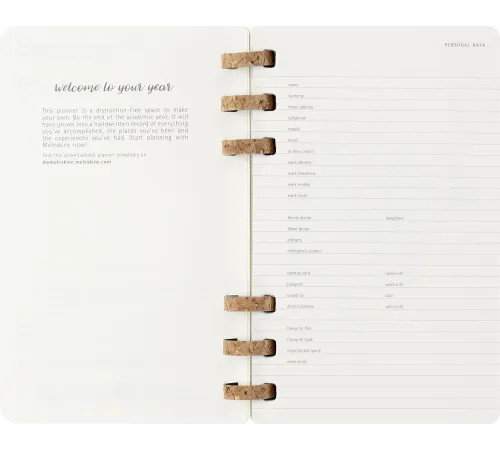 welcome to your year
This planner is a distraction-free space to make
your own. By the end of the academic year, it will
have grown into a handwritten record of everything
you've accomplished, the places you've been and
the experiences you've had. Start planning with
Moleskine now!
Find free downloadable planner templates on
mymoleskine.moleskine.com
PERSONAL DATA
name
surname
home address
telephone
mobile
email
work address
work telephone
work mobile
work email
family doctor telephone
blood group
allergies
emergency contact
passport valid until
issued by date
driver's licence valid until
favourite film
favourite book
inspirational quote